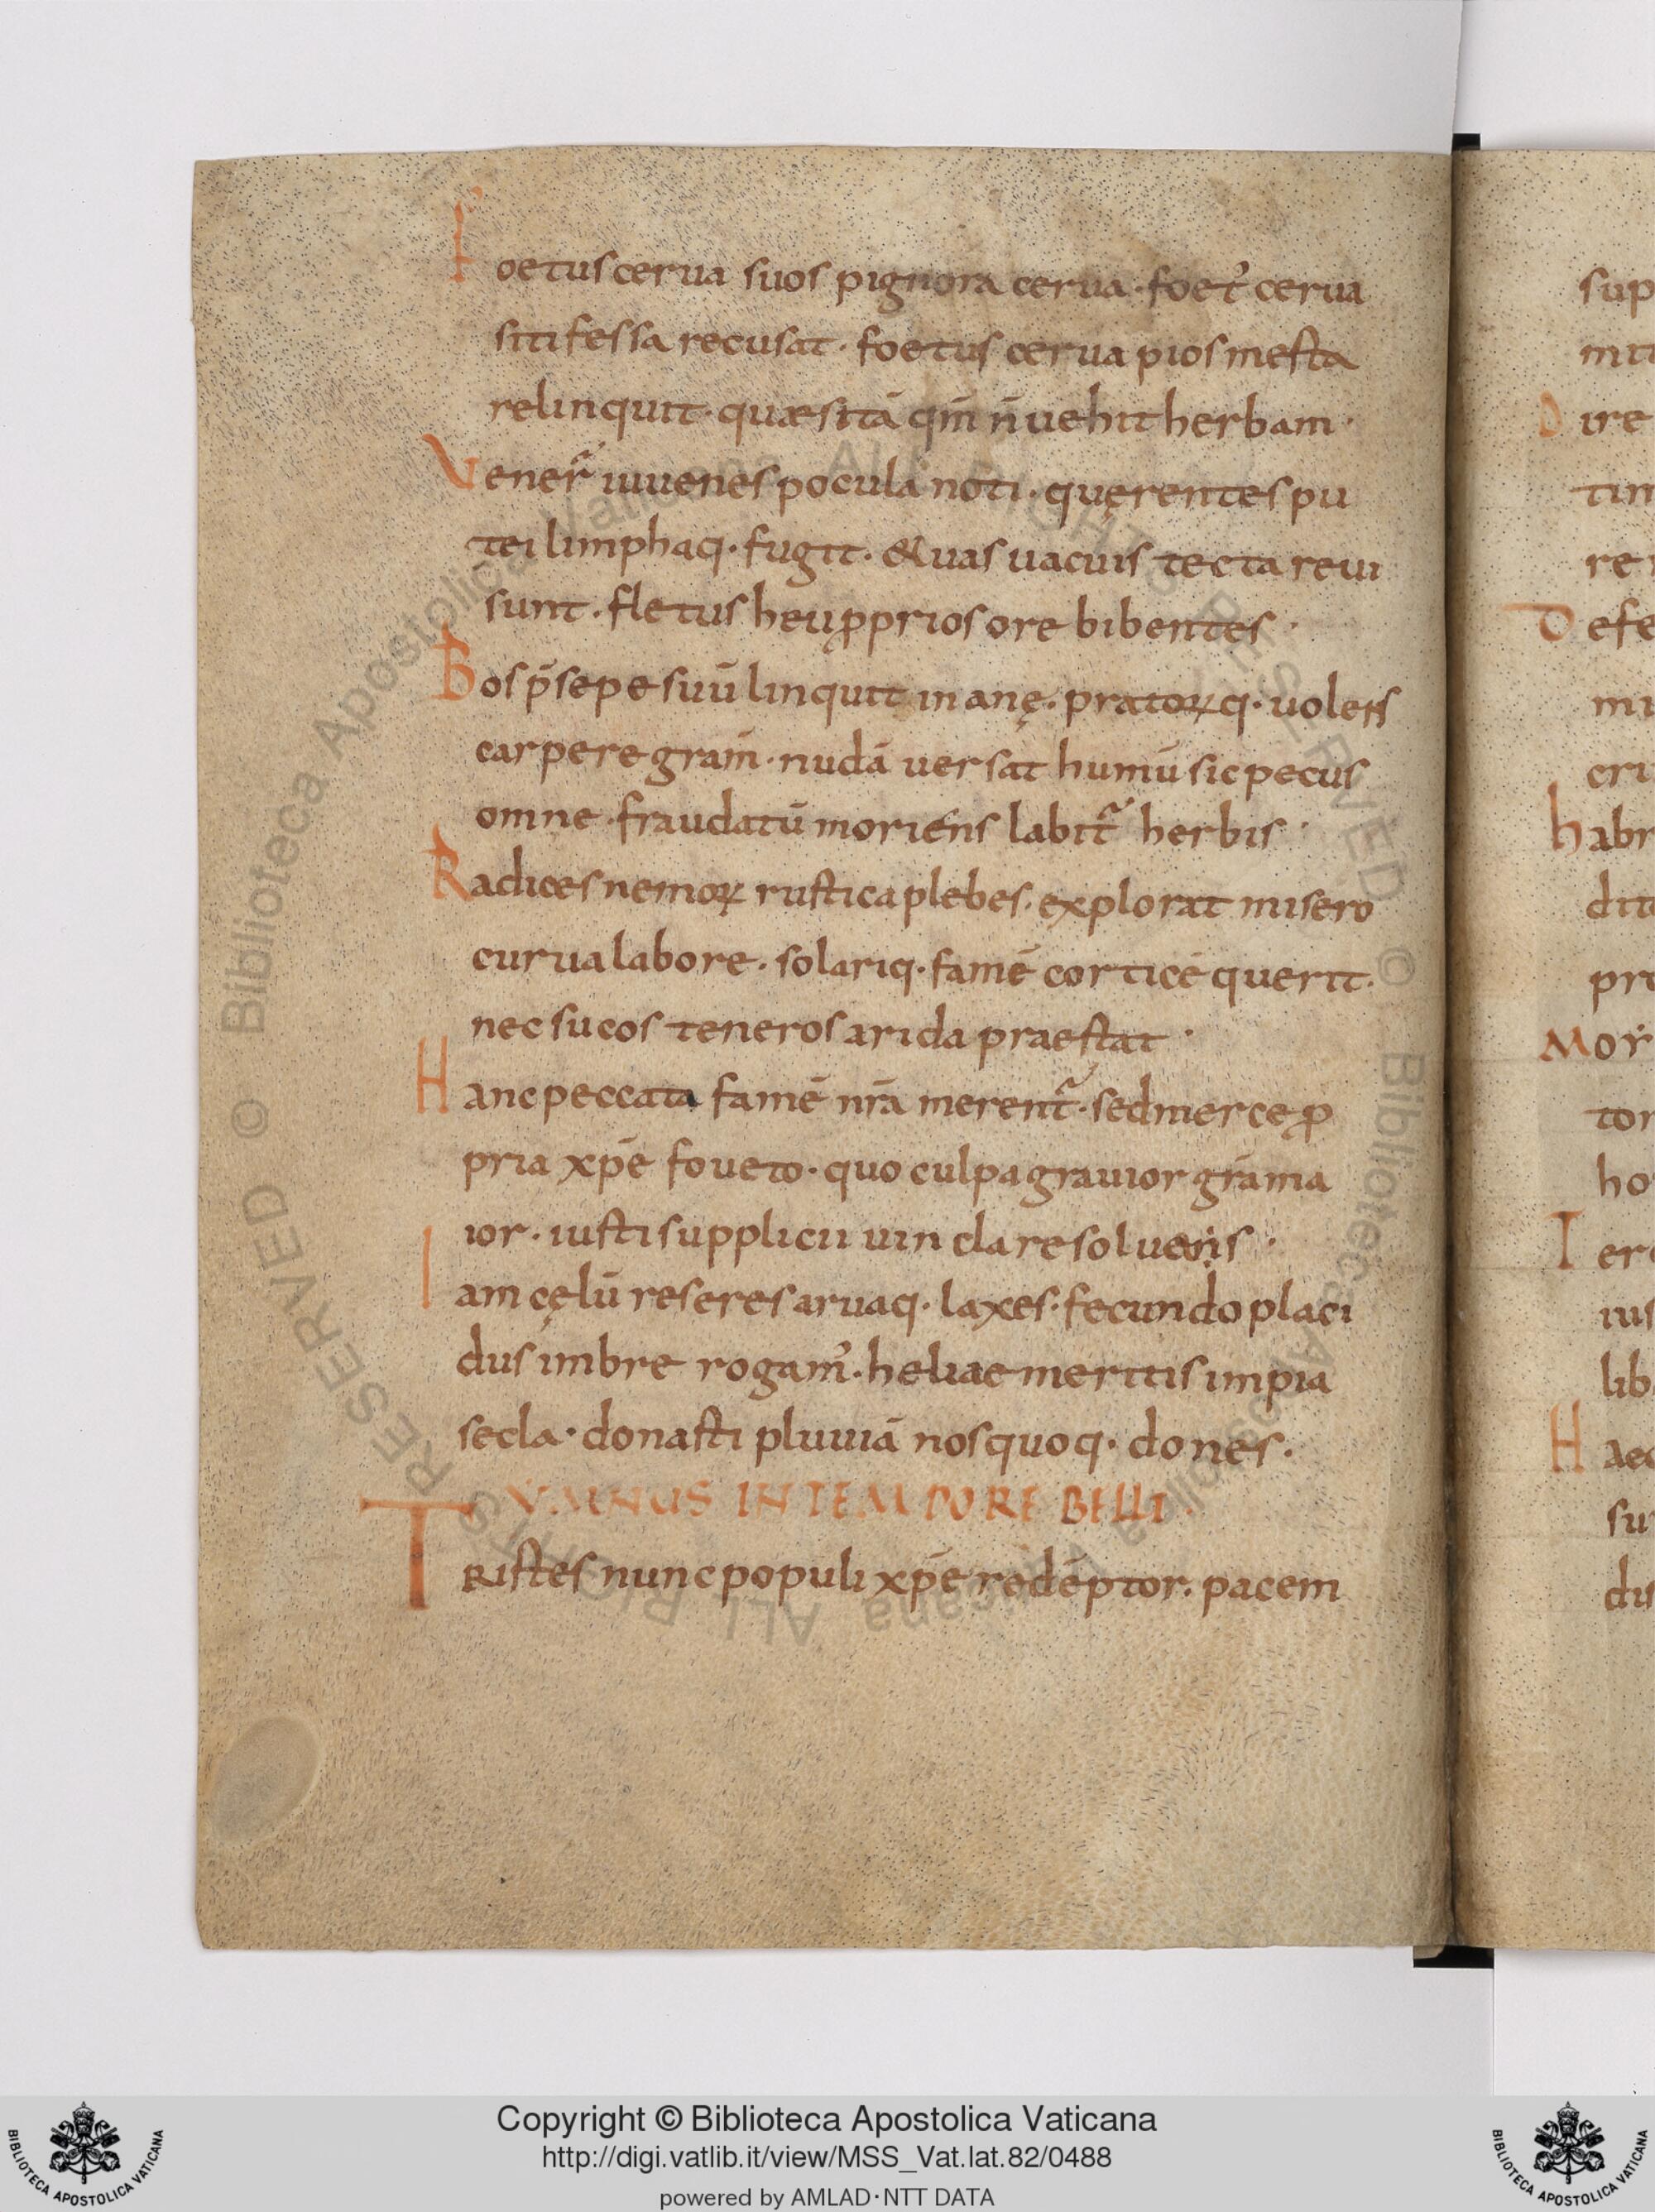 Foetus cerua suos pignora cerua · foet᾽ cerua
siti fessa recusat · foetus cerua pios mesta
relinquit · quaesitā qm̄ n̄ uehit herbam ·
Vener̄ iuuenes pocula noti · quęrentes pu
tei limphaq · fugit · & uas uacuis tecta reui
sunt · fletus heu ꝓprios ore bibentes ·
Bos p̄sepe suū linquit inanę · pratoꝝq · uolens
carpere gram̄ · nudā uersat humū sic pecus
omne · fraudatū moriens labit᷑ herbis ·
Radices nemoꝝ rustica plebes · explorat misero
curua labore · solariq · famē corticē querit ·
nec sucos teneros arida praestat ·
Hanc peccata famē nr̄a merent᷑ · sed merce ꝓ
pria xp̄e foueto · quo culpa grauior gr̄a ma
ior · iusti supplicii uincla resoluens ·
Iam cęlū reseres aruaq · laxes · fecundo placi
dus imbre rogam᾽ · heliae meritis impia
secla · donasti pluuiā nos quoq · dones ·
YMNUS IN TEMPORE BELLI
Tristes nunc populi xp̄e redēptor · pacem
sup
mit
Dire
tim
re
Defe
mi
cri
habr
dit
pro
Mor
tor
ho
Ter
ius
lib
Haec
su
dis
© Biblioteca Apostolica Vaticana ALL RIGHTS RESERVED © Biblioteca Apostolica Vaticana ALL RIGHTS RESERVED
BIBLIOTECA APOSTOLICA VATICANA
Copyright © Biblioteca Apostolica Vaticana
http://digi.vatlib.it/view/MSS_Vat.lat.82/0488
powered by AMLAD·NTT DATA
BIBLIOTECA APOSTOLICA VATICANA